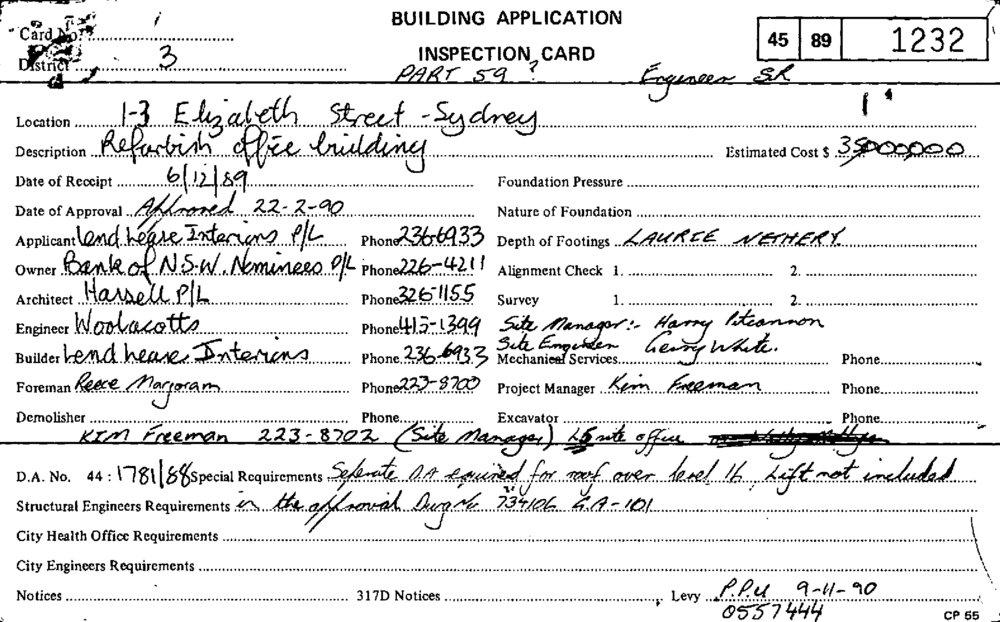 BUILDING APPLICATION
Card No.
45 89 1232
INSPECTION CARD
District 3
PART 59 ? Engineer SR
Location 1-3 Elizabeth Street - Sydney
Description Refurbish office building Estimated Cost $
Date of Receipt 6/12/89 Foundation Pressure
Date of Approval Approved 22-2-90 Nature of Foundation
Applicant Lend Lease Interiors P/L Phone 236-6933 Depth of Footings LAURIE NETHERY
Owner Bank of N.S.W. Nominees P/L Phone 226-4211 Alignment Check 1. 2.
Architect Hassell P/L Phone 326-1155 Survey 1. 2.
Engineer Woolacotts Phone 415-1399 Site Manager:- Harry
Builder Lend Lease Interiors Phone 236-6933 Site Engineer Gerry White.
Mechanical Services Phone
Foreman Reece Marjoram Phone 223-8700 Project Manager Kim Freeman Phone
Demolisher Phone Excavator Phone
KIM Freeman 223-8702 (Site Manager) site office
D.A. No. 44 : 1781/88 Special Requirements Seperate D.A required for roof over level 16. Lift not included
Structural Engineers Requirements in the approval Dwg No 734106 G.A-101
City Health Office Requirements
City Engineers Requirements
Notices 317D Notices Levy P.P.U 9-11-90
0557444
CP 55